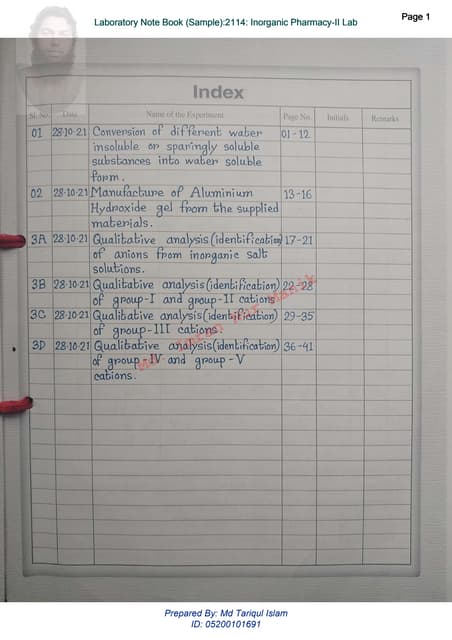 Laboratory Note Book (Sample):2114: Inorganic Pharmacy-II Lab
Page 1
Index
Sl. No. Date Name of the Experiment Page No. Initials Remarks
01 28-10-21 Conversion of different water 01-12
insoluble or sparingly soluble
substances into water soluble
form.
02 28-10-21 Manufacture of Aluminium 13-16
Hydroxide gel from the supplied
materials.
3A 28-10-21 Qualitative analysis (identification) 17-21
of anions from inorganic salt
solutions.
3B 28-10-21 Qualitative analysis (identification) 22-28
of group-I and group-II cations
3C 28-10-21 Qualitative analysis (identification) 29-35
of group-III cations.
3D 28-10-21 Qualitative analysis (identification) 36-41
of group-IV and group-V
cations.
Prepared By: Md Tariqul Islam
ID: 05200101691